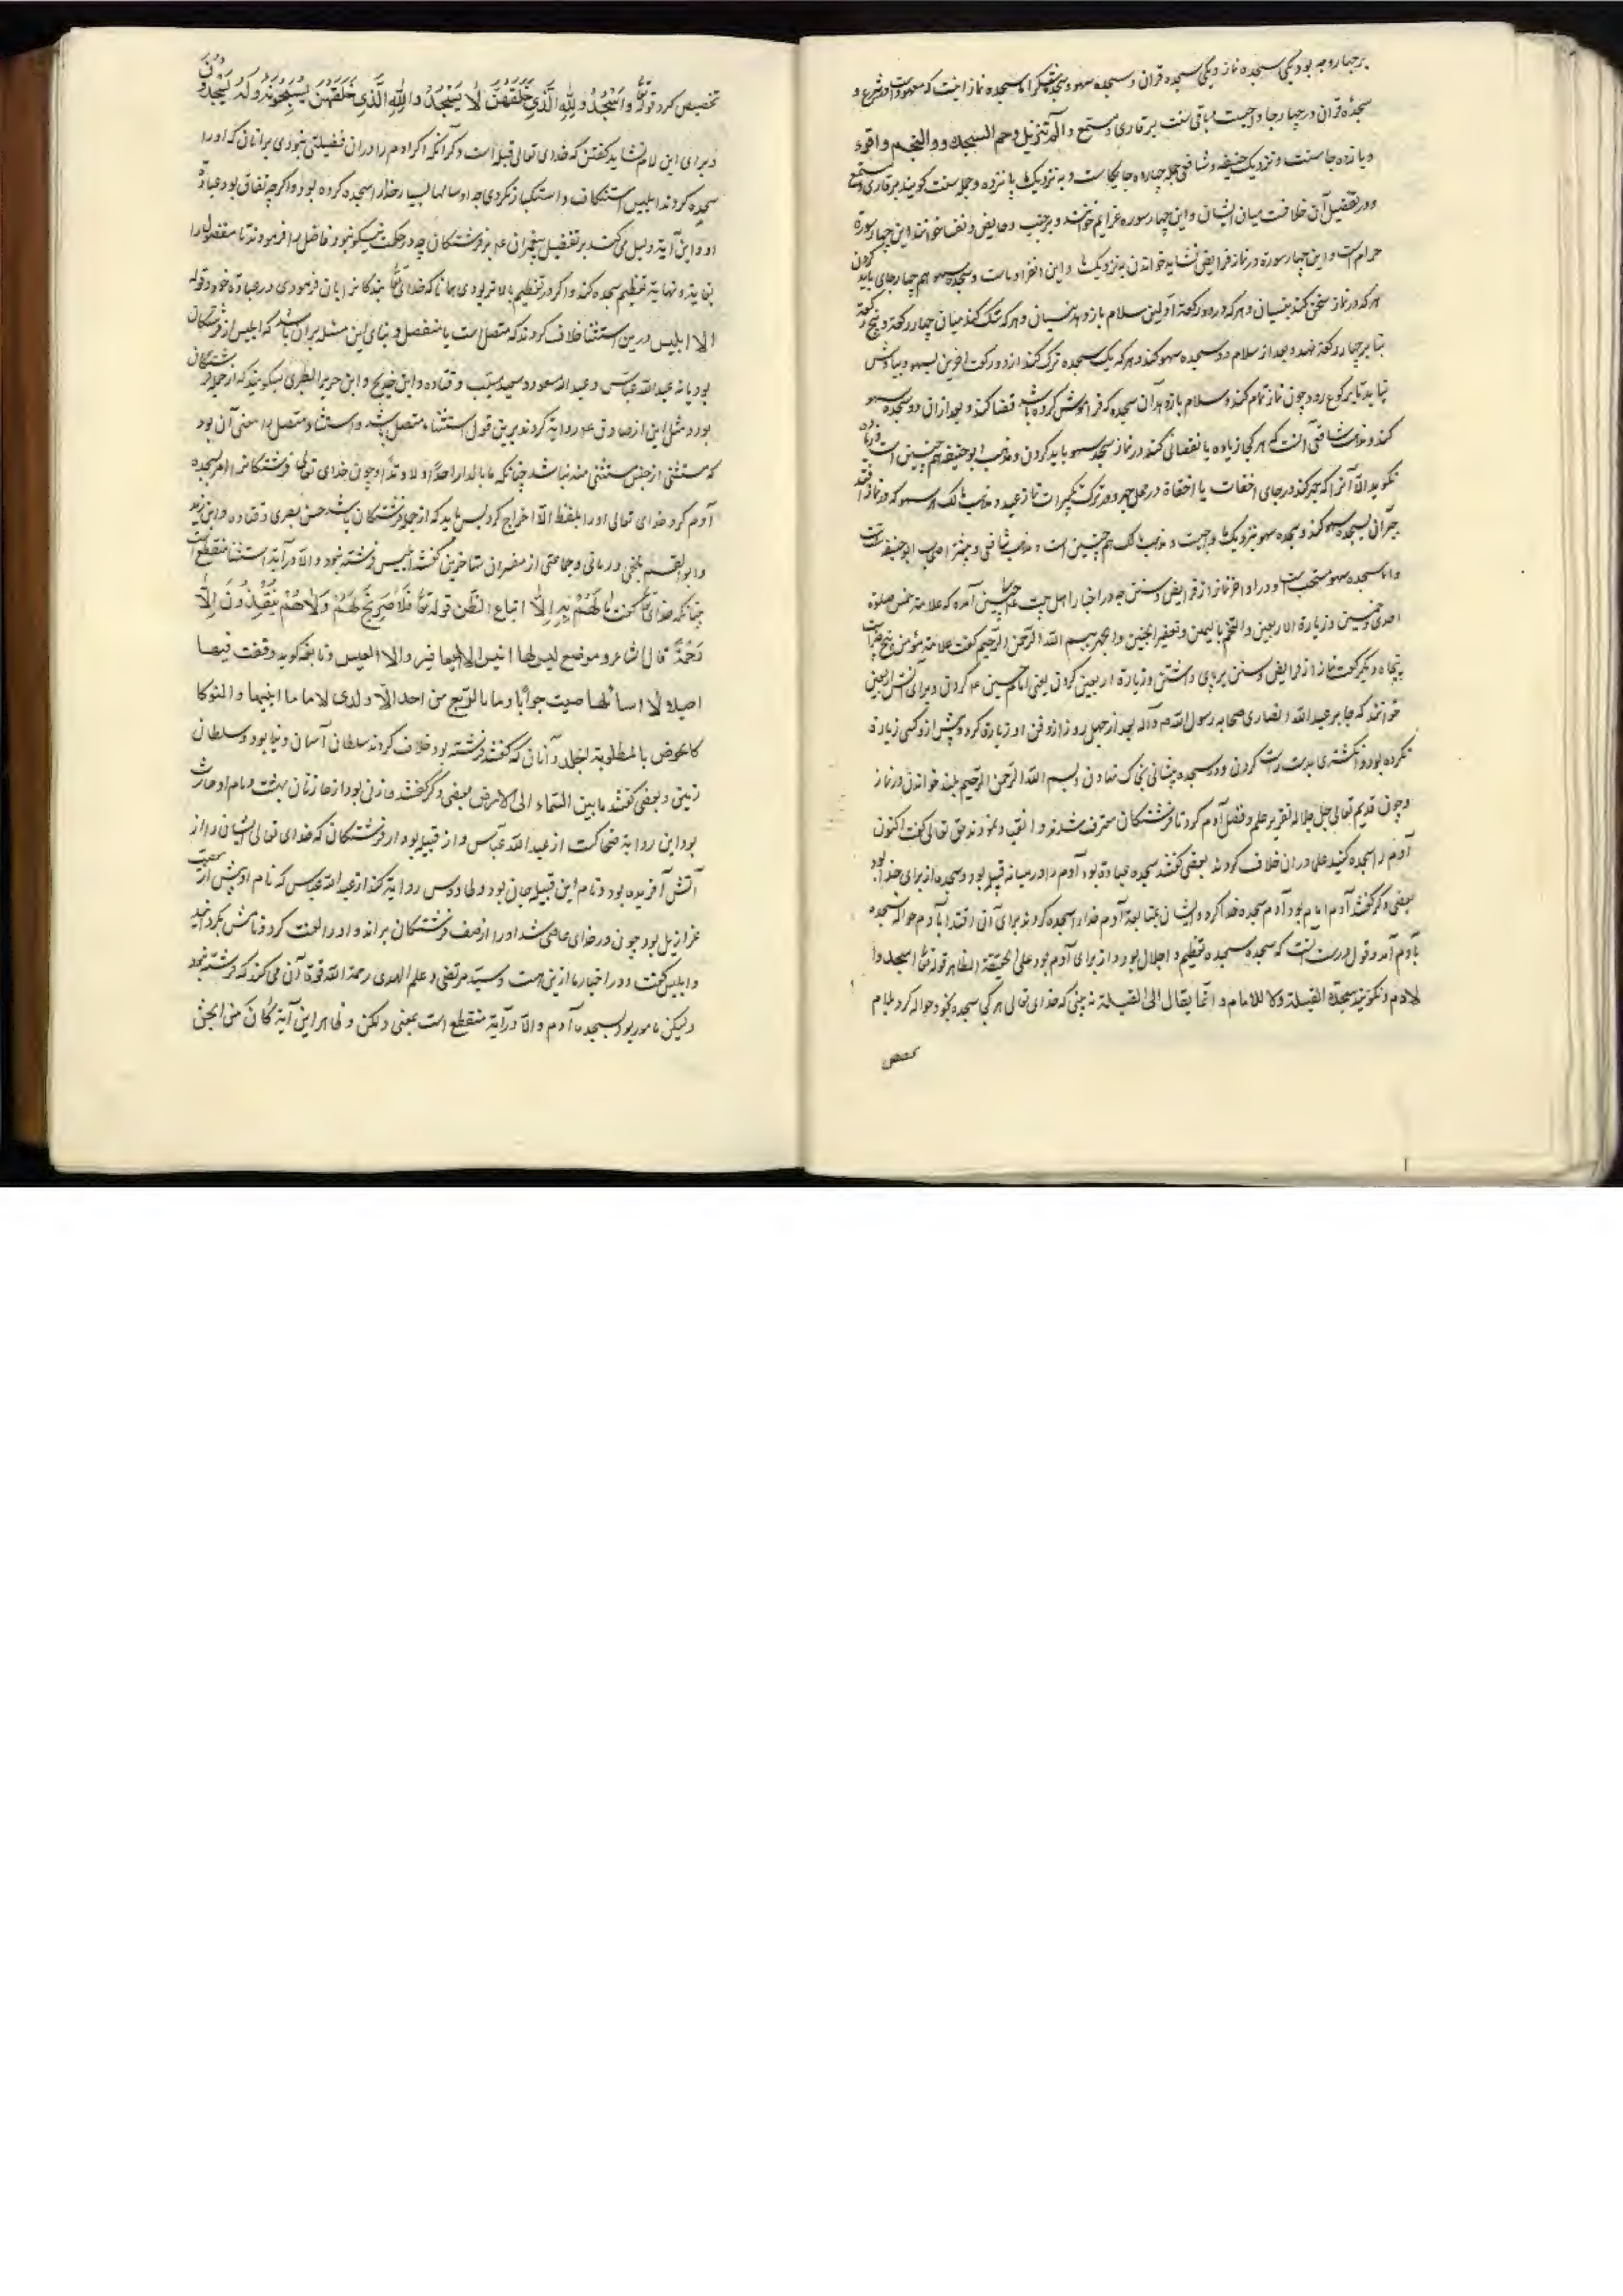 بر چهار وجه بود یکی سجده نماز و یکی سجده قران و سجده سهو و سجده شکر اما سجده نماز اینست که معهود است در شرع و
سجدۀ قران در چهار جا واجبست و باقی سنت بر قاری و مستمع و الم تنزیل و حم السجده و والنجم و اقرء
و یازده جا سنت و نزدیک حنیفه و شافعی جمله چهارده جایکاست و به نزدیک ما پانزده و جمله سنت کویند بر قاری و مستمع
و در تفصیل آن خلافست میان ایشان و این چهار سوره عزایم خوانند و بر جنب و حایض و نفسا خواندن این چهار سورة
حرام است و این چهار سورة در نماز فرایض نشاید خواندن به نزدیک ما و این انفراد ماست و سجده سهو هم چهار جای باید کردن
هر که در نماز سخن کند بنسیان و هر که در دو رکعة اولین سلام باز دهد بنسیان و هر که شک کند میان چهار رکعة و پنج رکعة
بنا بر چهار رکعة نهد و بعد از سلام دو سجده سهو کند و هر که یک سجده ترک کند از دو رکعت آخرین بسهو و بیادش
نیاید تا برکوع رود چون نماز تمام کند و سلام باز دهد آن سجده که فراموش کرده باشد قضا کند و بعد از آن دو سجده سهو
کند و مذهب شافعی آنست که هر کجا زیاده یا نقصانی کند در نماز سجده سهو باید کردن و مذهب ابو حنیفه هم چنین است
نکوید الا آنرا که جهر کند در جای اخفات یا اخفاة در محل جهر و در ترک تکبیرات نماز عید و مذهب مالک هر سهو که در نماز افتد
جبر آن بسجده سهو کند و سجده سهو بنزدیک ما واجبست و مذهب مالک هم چنین است و مذهب شافعی و بیشتر اصحاب ابو حنیفه سنت است
و اما سجده سهو مستحب است و در اواخر نماز از فرایض و سنن چه در اخبار اهل بیت هم چنین آمده که علامة المؤمن خمس صلوة
احدی و خمسین و زیارة الاربعین و التختم بالیمین و تعفیر الجبین و الجهر ببسم الله الرحمن الرحیم کفت علامة مؤمن پنج چیز است
پنجاه و یکرکعت نماز از فرایض و سنن بر پای داشتن و زیارة اربعین کردن یعنی امام حسین ع م کردن و برای آنش اربعین
خوانند که جابر عبد الله انصاری صحابه رسول الله ص و آله بعد از چهل روز از دفن او زیارة کرد و پیش ازو کسی زیارة
نکرده بود و انکشتری بدست راست کردن و در سجده پیشانی بخاک نهادن و بسم الله الرحمن الرحیم بلند خواندن در نماز
و چون قدیم تعالی جل جلاله تقریر علم و فضل آدم کرد تا فرشتکان معترف شدند و انقیاد نمودند حق تعالی کفت اکنون
آدم را سجده کنید علما در آن خلاف کردند بعضی کفتند سجده عبادة بود آدم را در میانه قبله بود و سجده از برای خدا بود
بعضی دکر کفتند آدم امام بود آدم سجده خدا کرد و ایشان بمتابعة آدم خدا را سجده کردند برای آن اقتدا بآدم حواله سجده
بآدم آمد و قول درست آنست که سجده سجده تعظیم و اجلال بود و از برای آدم بود علی الحقیقة الظاهر قوله تعالی اسجدوا
لادم و نکویند سجدة القبلة و لا للامام و انما یقال الی القبلة نه بینی که خدای تعالی هر کجا سجده بخود حواله کرد بلام
تخصیص
تخصیص کرد قوله تعالی واسجدوا لله الذی خلقهن لا یسجد والله الذی خلقهن یسبحونه وله یسجدون
و برای این لام نشاید کفتن که خدای تعالی قبله است و دکر آنکه اکر ادم را در ان فضیلتی نبودی بر اتان که او را
سجده کردند ابلیس استنکاف و استکبار نکردی چه او سالها بسیار خدا را سجده کرده بود و اکر چه نفاق بود عبادة
او و این آیة دلیل می کند بر تفضیل پیغمبران علم بر فرشتکان چه در حکمت نیکو نبود فاضل را فرمودند تا مفضول را
بغایة و نهایة تعظیم سجده کند و اکر در تعظیم بالاتر بودی همانا که خدای تعالی بندکانرا بان فرمودی در عبادة خود قوله
الا ابلیس درین استثنا خلاف کردند که متصل است یا منفصل و بنای این مسئله بر ان باشد که ابلیس از فرشتکان
بود یا نه عبد الله عباس و عبد الله مسعود و سعید مسیب و قتاده و ابن جریح و ابن جریر الطبری میکویند که از جمله فرشتکان
بود و مثل این از صادق علم روایة کردند برین قول استثناء متصل باشد و استثناء متصل را معنی آن بود
که مستثنی از جنس مستثنی منه باشد چنانکه ما بالدار احدًا الا وتدًا و چون خدای تعالی فرشتکانرا امر سجده
آدم کرد خدای تعالی او را بلفظ الا اخراج کرد پس باید که از جمله فرشتکان باشد حسن بصری و قتاده و ابن زید
و ابو القسم بلخی و رمانی و جماعتی از مفسران متاخرین کفتند ابلیس فرشته نبود و الا در آیة استثنا منقطع است
چنانکه خدای تعالی کفت ما لهم به الا اتباع الظن قوله تعالی فلا صریخ لهم ولا هم ینقذون الا
رحمة قال شاعر و موضع لیس لها انیس الا الیعافیر والا العیس و نابغه کوید وقفت فیها
اصیلا لا اسائلها عیت جوابًا وما بالربع من احد الا واری لاما ما ابینها والنوکا
کالحوض بالمظلومة الجلد و آنان که کفتند فرشته بود خلاف کردند سلطان آسمان دنیا بود و سلطان
زمین و بعضی کفتند ما بین السماء الی الارض بعضی دکر کفتند خازن بود از خازنان بهشت و نام او حارث
بود این روایة ضحاکست از عبد الله عباس و از قبیله بود از فرشتکان که خدای تعالی ایشان را از
آتش آفریده بود و نام این قبیله جان بود و طاوس روایة کند از عبد الله عباس که نام او پیش از معصیت
عزازیل بود چون در خدای عاصی شد او را از صف فرشتکان براند و او را لعنت کرد و نامش بکردانید
و ابلیس کفت و در اخبار ما ازین هست و سید مرتضی و علم الهدی رحمة الله قوة آن می کند که فرشته نبود
ولیکن مامور بود بسجده آدم و الا در آیة منقطع است بمعنی ولکن و ظاهر این آیة کان من الجن